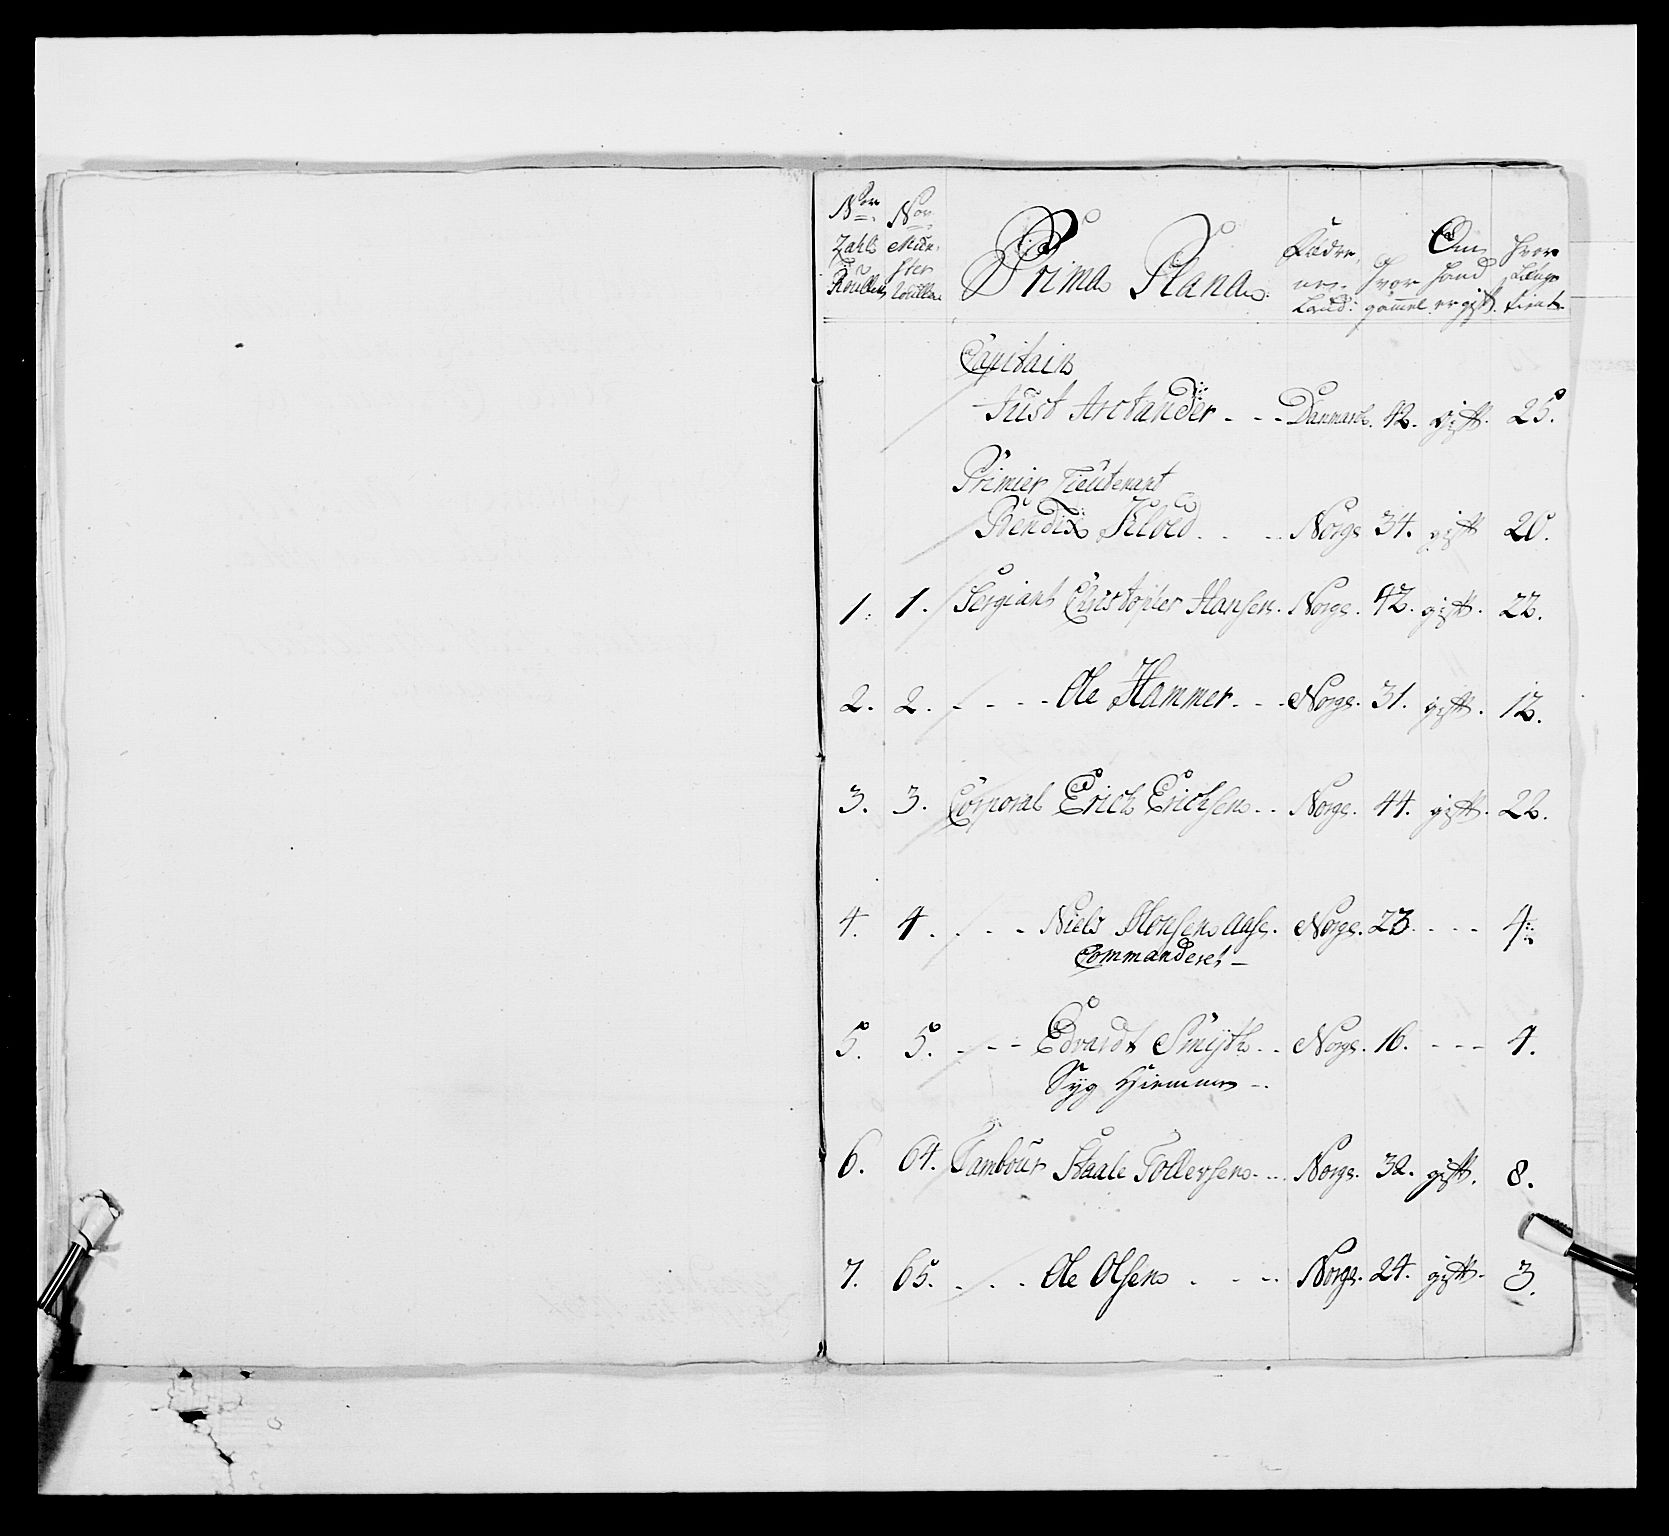 Nor Zahls Roullen | Nor Mün- ster Roullen | Prima Plana | Fædre, ne- Land: | Hvor gammel | Om hand er gift. | Hvor Længe tient
Capitain
Just Arctander - - - Danmark. 42. gift. 25.
Primier Lieutenant
Bendix Kloed. . . . Norge 34. gift 20.
1. 1. Sergiant Christopher Hansen. Norge. 42. gift. 22.
2. 2. - - - - Ole Hammer. - - - Norge. 31. gift. 12.
3. 3. Corporal Erich Erichsen. . - Norge. 44. gift. 22.
4. 4. . . - - Niels Monsen Aase. Norge. 23. - - - - 4.
Commanderet -
5. 5. - - - Edvardt Smyth. . - Norge. 16. - - - 4.
Syg Hiemme -.
6. 64. Tambour Staale Tollevsen. . . Norge. 32. gift. 8.
7. 65. . . . Ole Olsen . - - . Norge. 24. gift. 3.